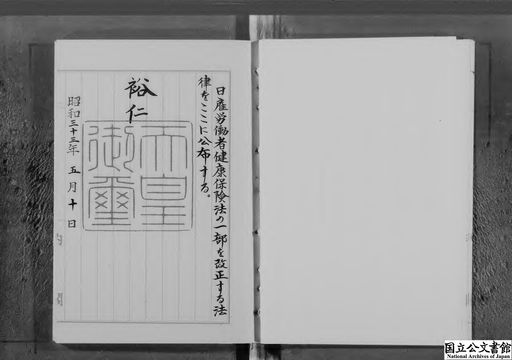 日雇労働者健康保険法の一部を改正する法
律をここに公布する。
裕仁
天皇
御璽
昭和三十三年五月十日
国立公文書館
National Archives of Japan